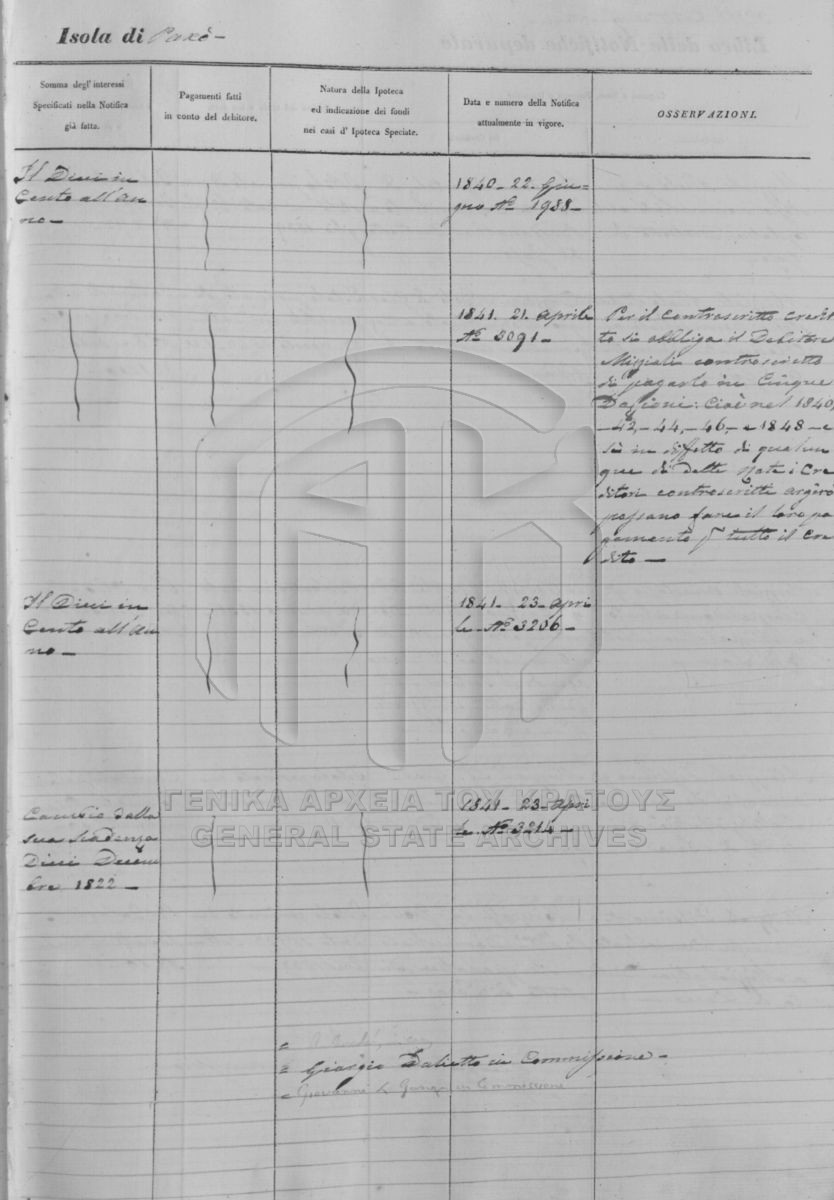 Isola di Paxò -
Somma degl' interessi
Specificati nella Notifica
già fatta.
Pagamenti fatti
in conto del debitore.
Natura della Ipoteca
ed indicazione dei fondi
nei casi d' Ipoteca Speciate.
Data e numero della Notifica
attualmente in vigore.
OSSERVAZIONI.
Il Dieci in
Cento all'An
no -
1840 - 22. Giu-
gno No 1988 -
1841. 21. Aprile
No 3091 -
Per il controscritto Credi
to si obbliga il Debitore
controscritto
di pagarlo in Cinque
Cioè nel 1840,
- 42, - 44, - 46, - e 1848 - e
se in diffetto di qualun
que di dette Rate i Cre
ditori controscritti
possano fare il loro pa
gamento p tutto il Cre
dito -
Il Dieci in
Cento all'An
no -
1841 - 23 - Apri
le. No 3206 -
Cambio dalla
sua Scadenza
Dieci Decem
bre 1822 -
1841 - 23 - Apri
le. No 3214 -
ΓΕΝΙΚΑ ΑΡΧΕΙΑ ΤΟΥ ΚΡΑΤΟΥΣ
GENERAL STATE ARCHIVES
= Giorgio in Commissione -
= Giovanni in Commissione